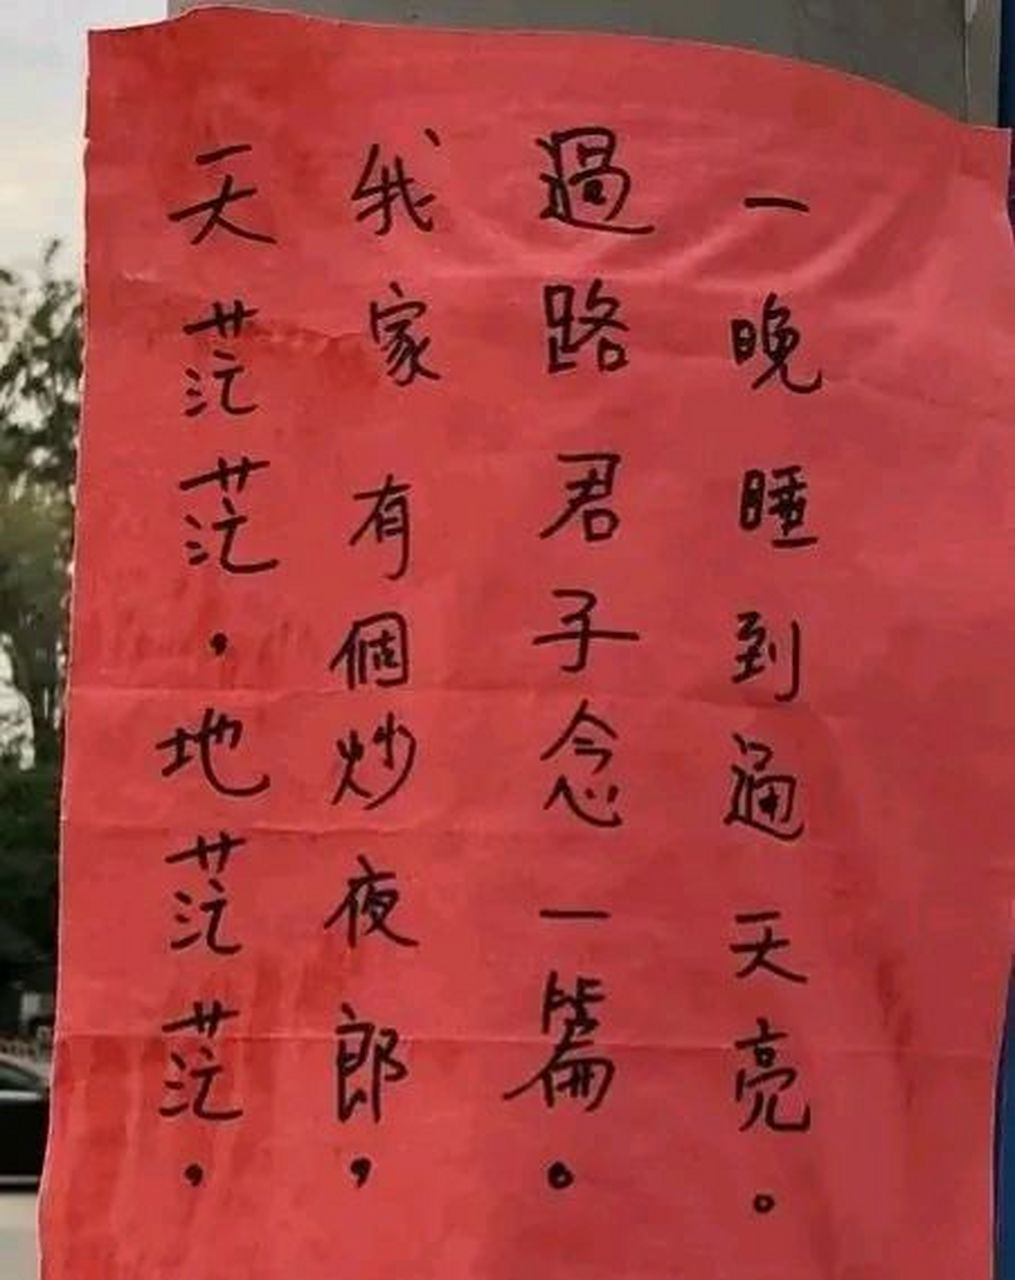 天茫茫，地茫茫，
我家有個炒夜郎，
過路君子念一篇。
一晚睡到通天亮。